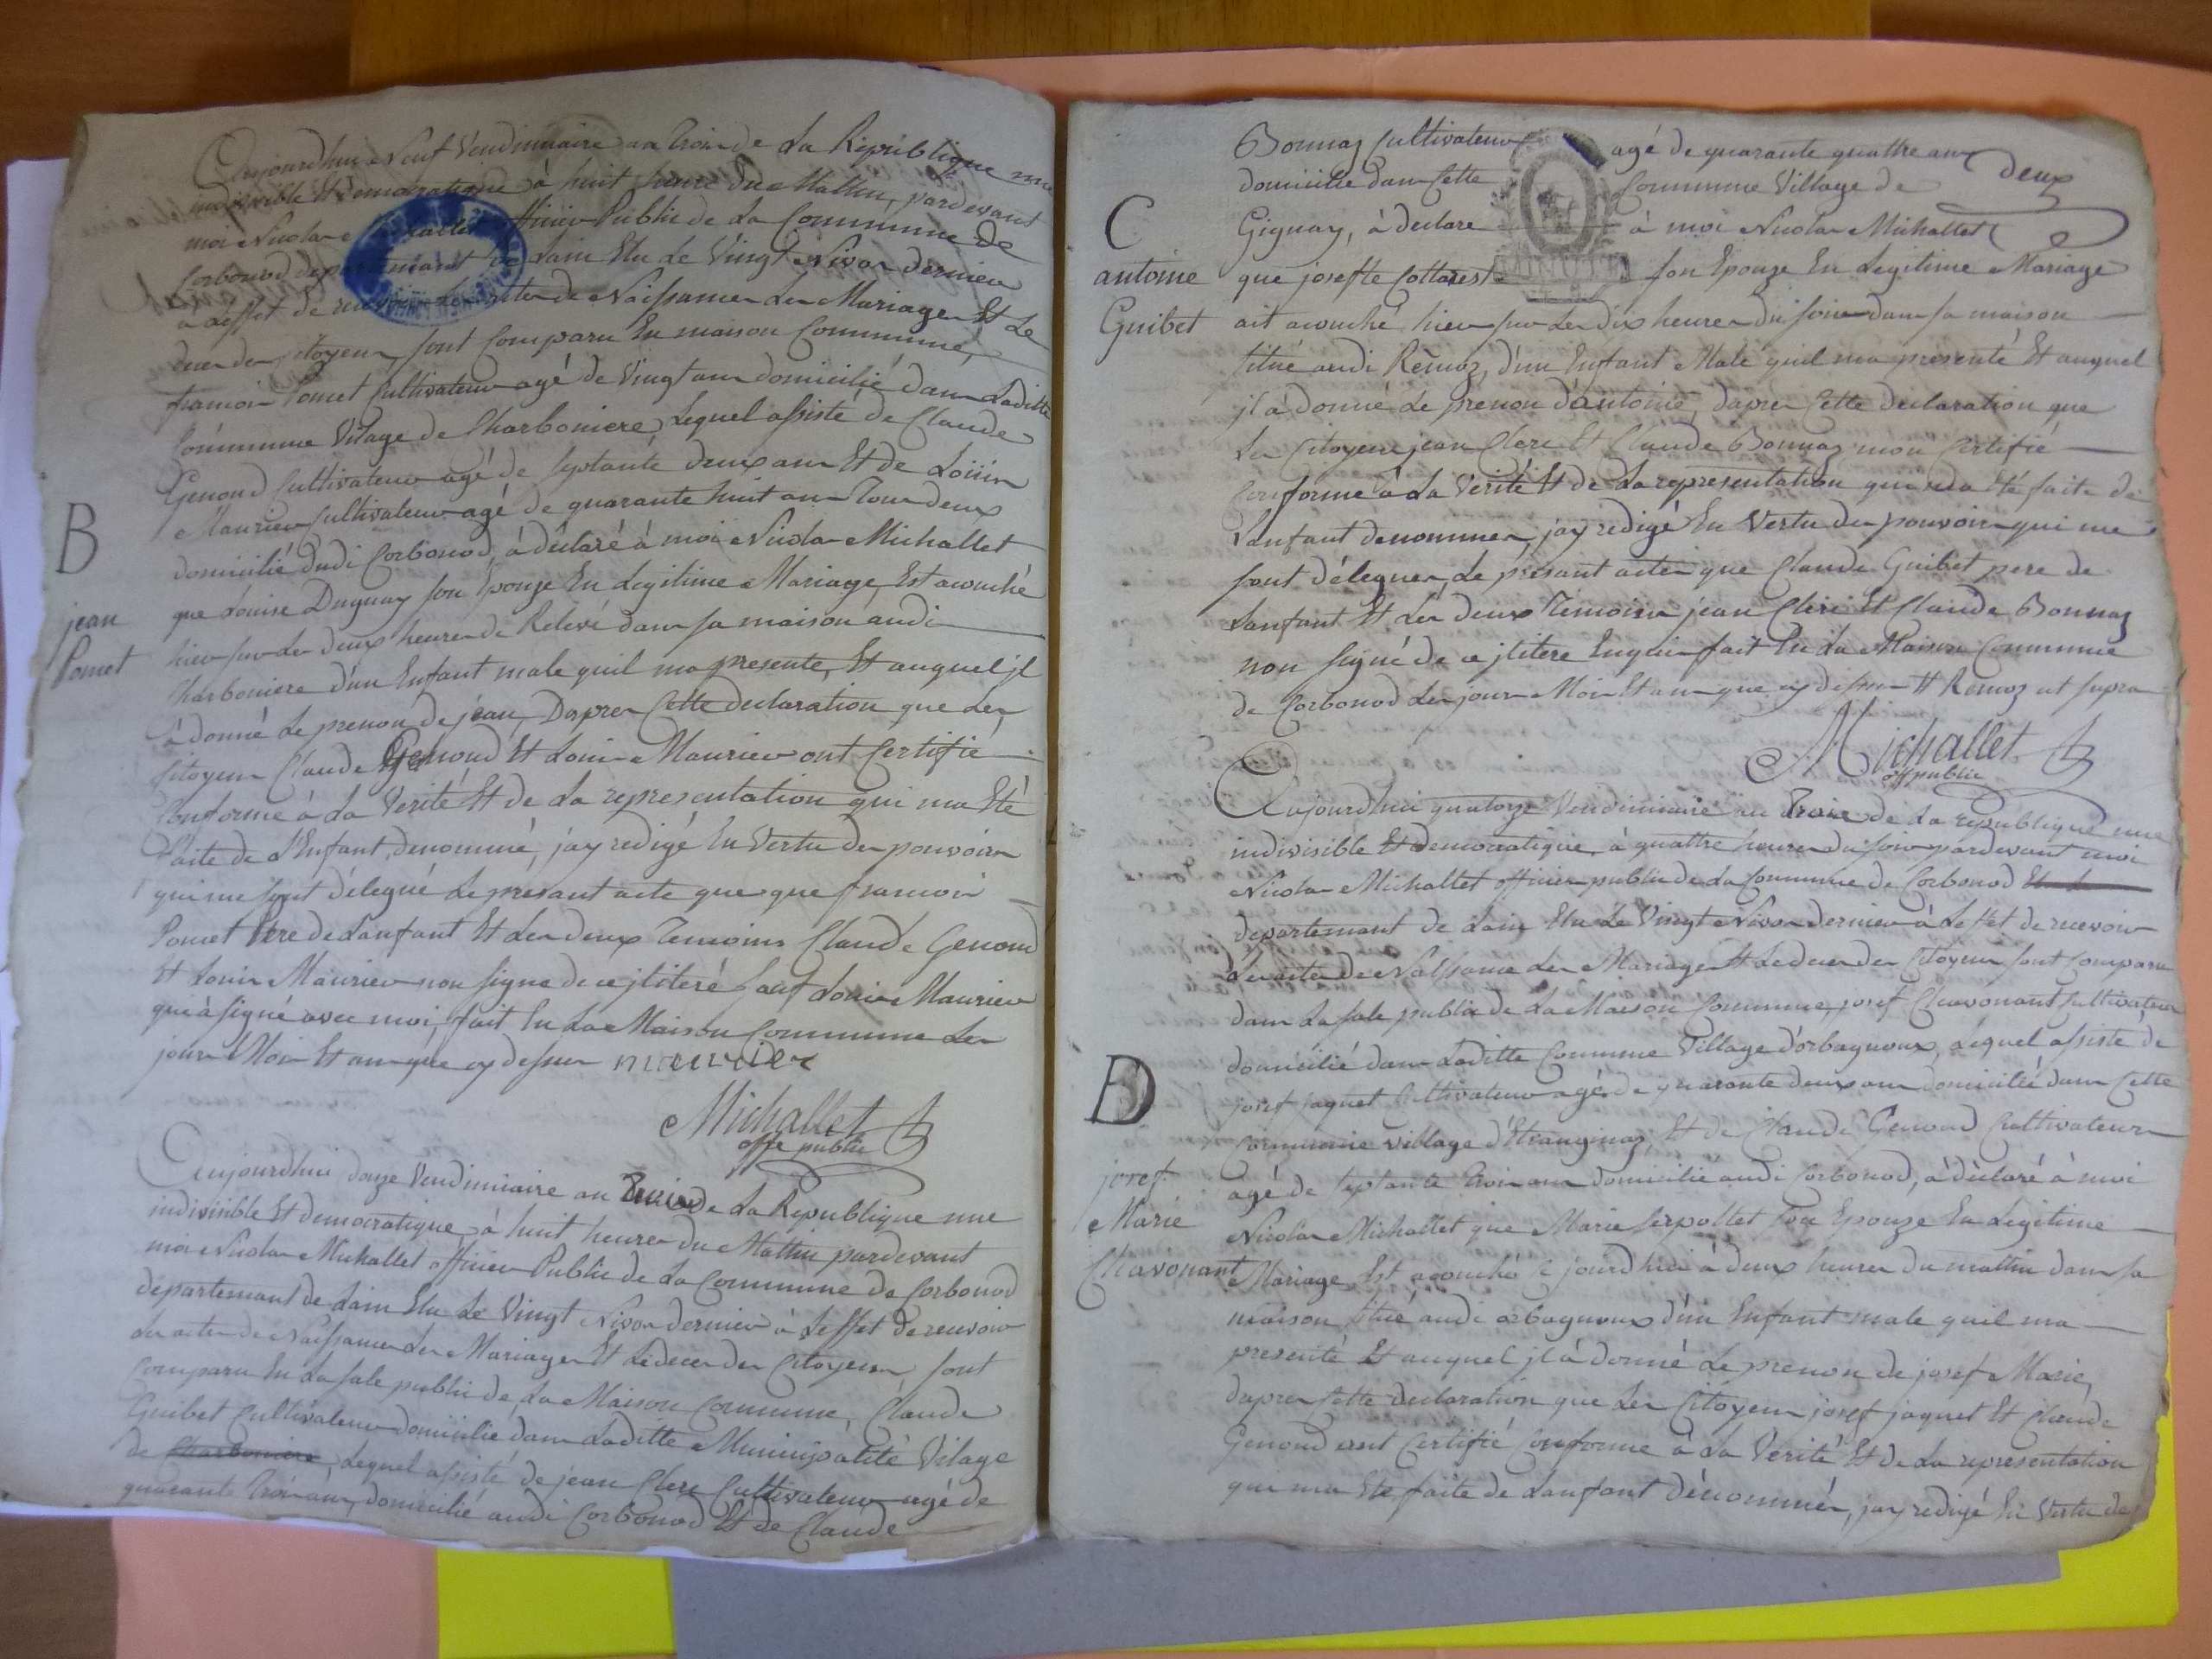 Aujourdhui Neuf Vendimiaire an Trois de La Republique une
indivisible Et Democratique à huit heure du Mattin, pardevant
moi Nicolas Michallet officier Public de La Commune de
Corbonod departemant de Lain Elu Le Vingt Nivos dernier
à Leffet de recevoir Les actes de Naissances Les Mariages Et Le
deces des Citoyens, sont Comparu En maison Commune,
francois Pomet Cultivateur agé de Vingt ans domicilié dans Laditte
Commune Vilage de Charboniere, Lequel assisté de Claude
Genoud Cultivateur agé de septante deux ans Et de Loüis
Maurier Cultivateur agé de quarante huit ans Tous deux
domicilié dudi Corbonod, à déclaré à moi Nicolas Michallet
que Louise Duguay son Epouze En Legitime Mariage, Est acouché
hier sur Les deux heures de Relevé dans sa maison audi
Charboniere d'un Enfant male quil ma presente, Et auquel jl
à donné Le prenon de jean, Dapres Cette declaration que Les
Citoyens Claude Genoud Et Louis Maurier ont Certifié
Conforme à La Verité Et de La representation qui ma Eté
faite de L'Enfant, denommé, jay redigé En Vertu des pouvoirs
qui me sont délegué Le présant acte que que francois
Pomet Pere de Lanfant Et Les deux Temoins Claude Genoud
Et Louis Maurier non signe de ce jlliteré sauf Louis Maurier
qui à signé avec moi, fait En La Maison Commune Les
jour Mois Et an que cy dessus maurier
Michallet
offe public
Aujourdhui douze Vendimiaire an Trois de La Republique une
indivisible Et democratique, à huit heures du Mattin pardevant
moi Nicolas Michallet officier Public de La Commune de Corbonod
departemant de Lain Elu Le Vingt Nivos dernier à Leffet de recevoir
Les actes de Naissances Les Mariages Et Le deces des Citoyens, sont
Comparu En La sale public de La Maison Commune, Claude
Guibet Cultivateur domicilié dans Laditte Municipalité Vilage
de Charboniere, Lequel assisté de jean Clerc Cultivateur agé de
quarante Trois ans, domicilié audi Corbonod Et de Claude
B
jean
Pomet
deux
Bonnaz Cultivateur agé de quarante quattre ans
domicilié dans Cette Commune Village de
Gignay, à declare à moi Nicolas Michallet
que josefte Cottarest son Epouze En Legitime Mariage
ait acouché hier sur Les Dix heures du soir dans sa maison
situé audi Rémoz, d'un Enfant Male quil ma presenté Et auquel
jl à donné Le prenon d'antoine, dapres Cette declaration que
Les Citoyens jean Clerc Et Claude Bonnaz mon Certifié
Conforme à La Verité Et de La representation qui ma été faite de
Lanfant denommer, jay redigé En Vertu des pouvoirs qui me
sont déleguer, Le présant acte que Claude Guibet pere de
Lanfant Et Les deux Temoins jean Clerc Et Claude Bonnaz
non signé de ce jlitere Enquis fait En La Maison Commune
de Corbonod Les jours Mois Et an que cy dessus # Remoz ut supra
Michallet
off public
C
antoine
Guibet
Aujourdhui quatorze Vendimiaire an Trois de La republique une
indivisible Et democratique, à quattre heures du soir pardevant moi
Nicolas Michallet officier public de La Commune de Corbonod Et de
departemant de Lain Elu Le Vingt Nivos dernier à Leffet de recevoir
Les actes de Naissance Les Mariages Et Le deces des Citoyens sont Comparu
dans La sale public de La Maison Commune, josef Chavonant Cultivateur
domicilié dans Laditte Commune Village d'orbagnoux, Lequel assiste de
josef jaquet Cultivateur agé de quarante deux ans domicilié dans Cette
Commune village d'Etranginaz, Et de Claude Genoud Cultivateur
agé de septante Trois ans domicilié audi Corbonod, à déclaré à moi
Nicolas Michallet que Marie Serpollet son Epouze En Legitime
Mariage, Est acouché ce jourdhui à deux heures du mattin dans sa
maison situé audi orbagnoux d'un Enfant male quil ma
presenté Et auquel jl à donné Le prenon de josef Marie,
dapres Cette declaration que Les Citoyens josef jaquet Et Claude
Genoud vont Certifié Conforme à La Verité Et de La representation
qui ma Ete faite de Lanfant dénommér, jay redigé En Vertu des
D
josef
Marie
Chavonant